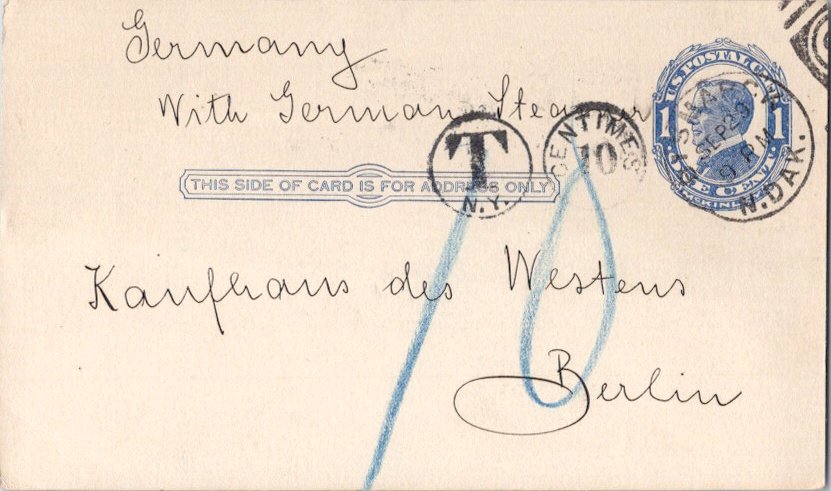 Germany
With German Steamer
U.S. POSTAL CARD
1 1
ONE CENT
McKINLEY
BISMARCK
SEP 29
9 PM
N. DAK.
T
N.Y.
CENTIMES
10
THIS SIDE OF CARD IS FOR ADDRESS ONLY
10
Kaufhaus des Westens
Berlin